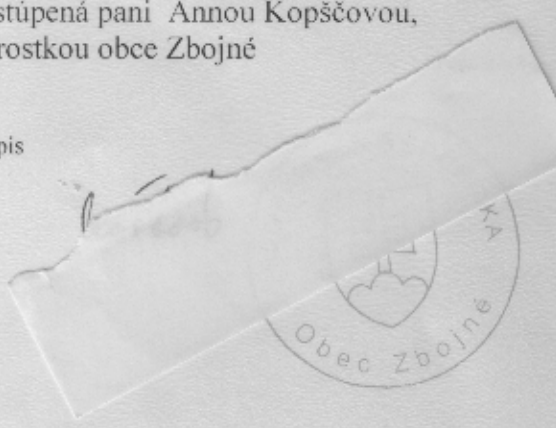 stúpená pani Annou Kopščovou,
rostkou obce Zbojné
pis
KA
Obec Zbojné